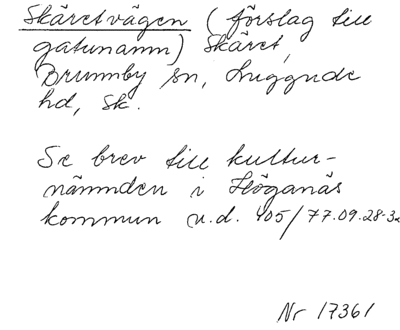 Skäretvägen (förslag till
gatunamn) Skäret,
Brunnby sn, Luggude
hd, Sk.
Se brev till kultur-
nämnden i Höganäs
kommun u.d. 405/77.09.28-32
Nr 17361